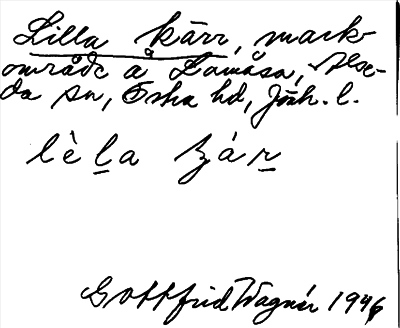 Lilla Kärr, mark-
område å Lamåsa, Alse-
da sn, Östra hd, Jönk. l.
lèla ʒár
Gottfrid Wagnér 1946